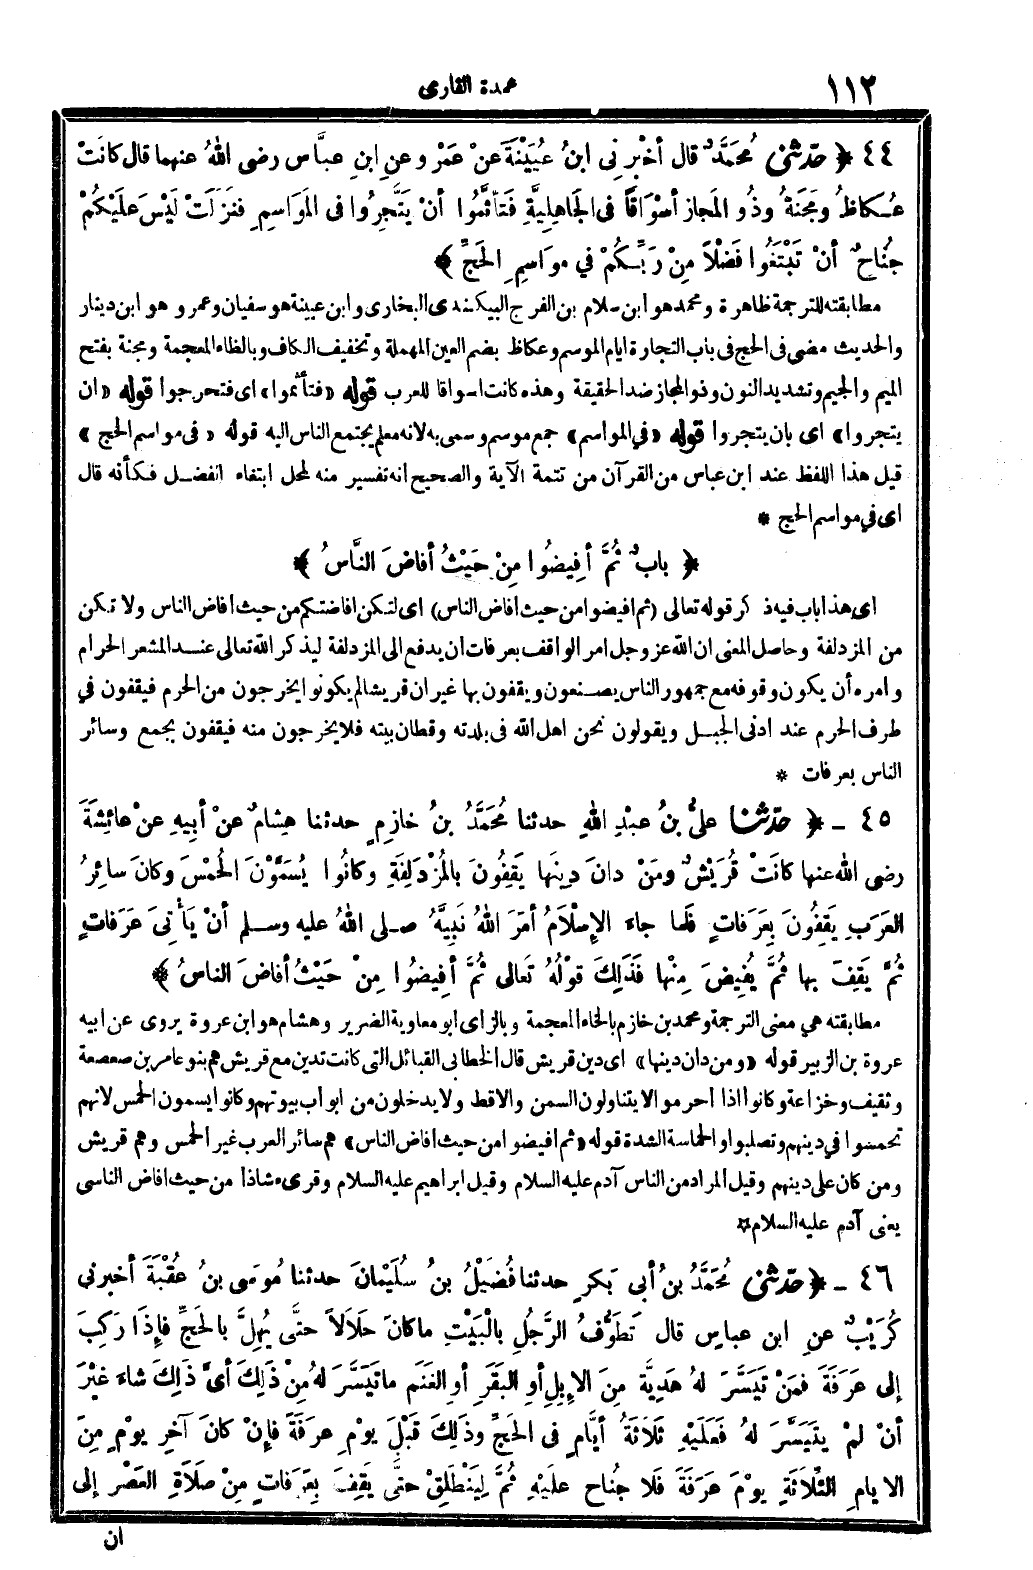 ١١٢
عمدة القارى
٤٤ ﴿ حدّثنى مُحَمَّدٌ قال أخْبرنِى ابنُ عُيَيْنَةَ عنْ عَمْرٍ وعنِ ابنِ عبَّاسٍ رضى اللهُ عنهما قال كانَتْ
عُكاظُ ومَجَنَّةُ وذُو المَجازِ أسْوَاقًا فى الجَاهِليَّةِ فَتَأثَّمُوا أنْ يَتَّجِرُوا فى المَوَاسِمِ فنزَلَتْ لَيْسَ علَيْكُمْ
جُناحٌ أنْ تَبْتَغُوا فَضْلاً مِنْ رَبِّكُمْ فِي موَاسِمِ الحَجِّ ﴾
مطابقته للترجمة ظاهرة ومحمد هو ابن سلام بن الفرج البيكندى البخارى وابن عيينة هو سفيان وعمرو هو ابن دينار
والحديث مضى فى الحج فى باب التجارة ايام الموسم وعكاظ بضم العين المهملة وتخفيف الكاف وبالظاء المعجمة ومجنة بفتح
الميم والجيم وتشديد النون وذو المجاز ضد الحقيقة وهذه كانت اسواقا للعرب قوله «فتأثموا» اى فتحرجوا قوله «ان
يتجروا» اى بان يتجروا قوله «في المواسم» جمع موسم وسمى به لانه معلم يجتمع الناس اليه قوله «فى مواسم الحج»
قيل هذا اللفظ عند ابن عباس من القرآن من تتمة الآية والصحيح انه تفسير منه لمحل ابتغاء الفضل فكأنه قال
اى في مواسم الحج *
﴿ بابٌ ثُمَّ أفِيضُوا مِنْ حَيْثُ أفاضَ النَّاسُ ﴾
اى هذا باب فيه ذكر قوله تعالى (ثم افيضوا من حيث افاض الناس) اى لتكن افاضتكم من حيث افاض الناس ولا تكن
من المزدلفة وحاصل المعنى ان الله عز وجل امر الواقف بعرفات ان يدفع الى المزدلفة ليذكر الله تعالى عند المشعر الحرام
وامره أن يكون وقوفه مع جمهور الناس يصنعون ويقفون بها غير ان قريشا لم يكونوا يخرجون من الحرم فيقفون في
طرف الحرم عند ادنى الجبل ويقولون نحن اهل الله فى بلدته وقطان بيته فلا يخرجون منه فيقفون بجمع وسائر
الناس بعرفات *
٤٥ - ﴿ حدّثنا علىُّ بنُ عبْدِ اللهِ حدثنا مُحَمَّدُ بنُ خازِمٍ حدثنا هِشامٌ عنْ أبِيهِ عنْ عائِشَةَ
رضى الله عنها كانَتْ قُرَيْشٌ ومَنْ دانَ دِينَها يَقِفُونَ بالمُزْدَلِفَةِ وكانُوا يُسَمَّوْنَ الحُمْسَ وكانَ سائِرُ
العَرَبِ يَقِفُونَ بِعَرَفاتٍ فلَما جاءَ الإِسْلاَمُ أمَرَ اللهُ نَبِيَّهُ صلى اللهُ عليه وسلم أنْ يَأْتِىَ عَرَفاتٍ
ثُمَّ يَقِفَ بها ثُمَّ يُفِيضَ مِنْها فَذَلِكَ قوْلُهُ تَعالى ثُمَّ أفِيضُوا مِنْ حَيْثُ أفاضَ الناسُ ﴾
مطابقته هي معنى الترجمة ومحمد بن خازم بالخاء المعجمة وبالزاى ابو معاوية الضرير وهشام هو ابن عروة يروى عن ابيه
عروة بن الزبير قوله «ومن دان دينها» اى دين قريش قال الخطابى القبائل التى كانت تدين مع قريش هم بنو عامر بن صعصعة
وثقيف وخزاعة وكانوا اذا احرموا لا يتناولون السمن والاقط ولا يدخلون من ابواب بيوتهم وكانوا يسمون الحمس لانهم
تحمسوا في دينهم وتصلبوا والحماسة الشدة قوله «ثم افيضوا من حيث افاض الناس» هم سائر العرب غير الحمس وهم قريش
ومن كان على دينهم وقيل المراد من الناس آدم عليه السلام وقيل ابراهيم عليه السلام وقرىء شاذا من حيث افاض الناسى
يعنى آدم عليه السلام *
٤٦ - ﴿ حدّثنى مُحَمَّدُ بنُ أبى بَكرٍ حدثنا فُضَيْلُ بنُ سُلَيْمانَ حدثنا مُوسَى بنُ عُقْبَةَ أخبرنى
كُرَيْبٌ عنِ ابن عباسٍ قال تَطَوُّفُ الرَّجُلِ بالْبَيْتِ ما كانَ حَلاَلاً حتَّى يُهِلَّ بالحَجِّ فإِذَا رَكِبَ
إلى عَرَفَةَ فمَنْ تَيَسَّرَ لهُ هَدِيَّةٌ مِنَ الإِبِلِ أوِ البَقَرِ أوِ الغَنَمِ ما تَيَسَّرَ لهُ مِنْ ذَلِكَ أىَّ ذَلِكَ شاءَ غيْرَ
أنْ لمْ يتَيَسَّرَ لهُ فَعَلَيْهِ ثَلاَثَةُ أيَّامٍ فى الحَجِّ وذَلِكَ قَبْلَ يوْمِ عرَفَةَ فإِنْ كانَ آخِرِ يوْمٍ مِنَ
الايامِ الثَّلاَثَةِ يوْمَ عَرَفَةَ فَلا جُناحَ علَيْهِ ثُمَّ لِيَنْطَلِقْ حتَّى يَقِفَ بِعَرَفاتٍ مِنْ صَلاَةِ العَصْرِ إلى
ان